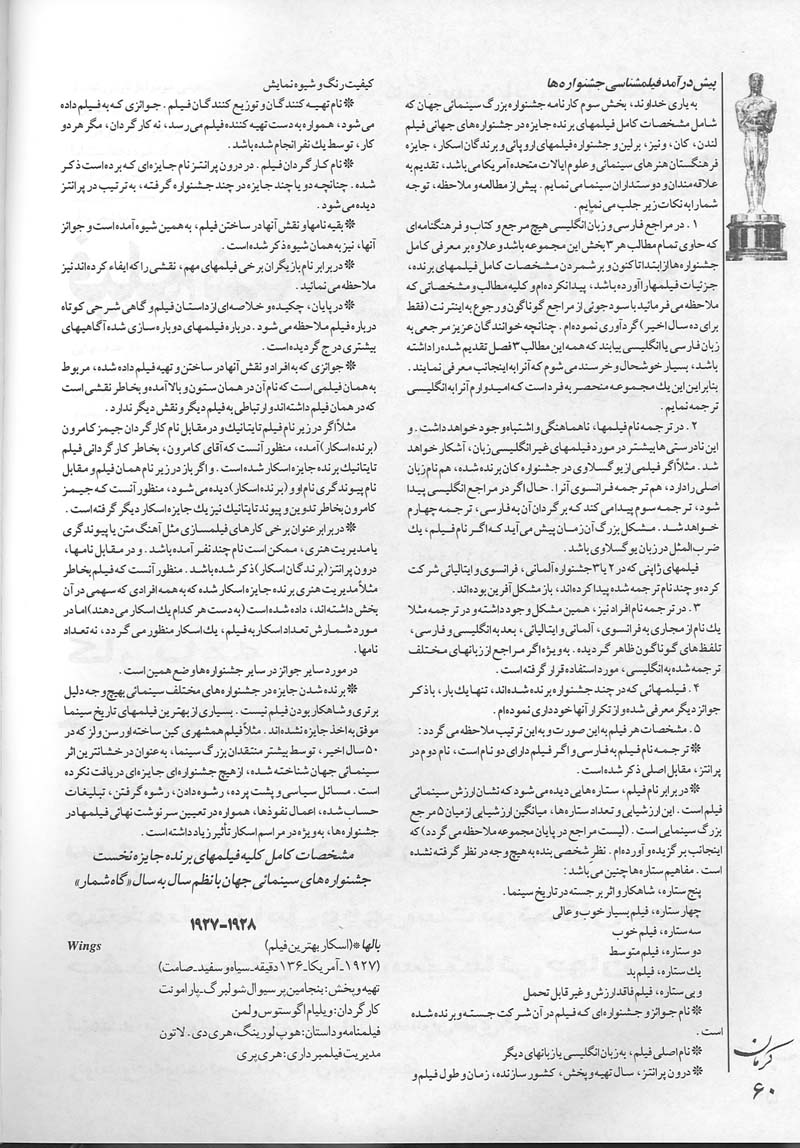 پیش درآمد فیلمشناسی جشنواره‌ها
به یاری خداوند، بخش سوم کارنامه جشنواره بزرگ سینمائی جهان که
شامل مشخصات کامل فیلمهای برنده جایزه در جشنواره‌های جهانی فیلم
لندن، کان، ونیز، برلین و جشنواره فیلمهای اروپائی و برندگان اسکار، جایزه
فرهنگستان هنرهای سینمائی و علوم ایالات متحده آمریکا می‌باشد، تقدیم به
علاقه‌مندان و دوستداران سینما می‌نمایم . پیش از مطالعه و ملاحظه، توجه
شما را به نکات زیر جلب می‌نمایم .
۱ . در مراجع فارسی و زبان انگلیسی هیچ مرجع و کتاب و فرهنگنامه‌ای
که حاوی تمام مطالب هر ۳ بخش این مجموعه باشد و علاوه بر معرفی کامل
جشنواره‌ها از ابتدا تاکنون و بر شمردن مشخصات کامل فیلمهای برنده،
جزئیات فیلمها را آورده باشد، پیدا نکرده‌ام و کلیه مطالب و مشخصاتی که
ملاحظه می‌فرمائید با سود جوئی از مراجع گوناگون و رجوع به اینترنت (فقط
برای ده سال اخیر) گردآوری نموده‌ام . چنانچه خوانندگان عزیز مرجعی به
زبان فارسی یا انگلیسی بیابند که همه این مطالب ۳ فصل تقدیم شده را داشته
باشد، بسیار خوشحال و خرسند می‌شوم که آنرا به اینجانب معرفی نمایند .
بنابراین این یك مجموعه منحصر به فرد است که امیدوارم آنرا به انگلیسی
ترجمه نمایم .
۲ . در ترجمه نام فیلمها، ناهماهنگی و اشتباه وجود خواهد داشت . و
این نادرستی‌ها بیشتر در مورد فیلمهای غیر انگلیسی زبان، آشکار خواهد
شد . مثلاً اگر فیلمی از یوگسلاوی در جشنواره کان برنده شده، هم نام زبان
اصلی را دارد، هم ترجمه فرانسوی آنرا . حال اگر در مراجع انگلیسی پیدا
شود، ترجمه سوم پیدا می کند که برگردان آن به فارسی، ترجمه چهارم
خواهد شد . مشکل بزرگ آن زمان پیش می‌آید که اگر نام فیلم، یك
ضرب المثل در زبان یوگسلاوی باشد .
فیلمهای ژاپنی که در ۲ یا ۳ جشنواره آلمانی، فرانسوی و ایتالیائی شرکت
کرده و چند نام ترجمه شده پیدا کرده‌اند، باز مشکل آفرین بوده‌اند .
۳ . در ترجمه نام افراد نیز، همین مشکل وجود داشته و در ترجمه مثلا
یك نام از مجاری به فرانسوی، آلمانی و ایتالیائی، بعد به انگلیسی و فارسی،
تلفظ‌های گوناگون ظاهر گردیده . به ویژه اگر مراجع از زبانهای مختلف
ترجمه شده به انگلیسی، مورد استفاده قرار گرفته است .
۴ . فیلمهائی که در چند جشنواره برنده شده‌اند، تنها یك بار، با ذکر
جوائز دیگر معرفی شده و از تکرار آنها خودداری نموده‌ام .
۵ . مشخصات هر فیلم به این صورت و به این ترتیب ملاحظه می گردد :
❋ ترجمه نام فیلم به فارسی و اگر فیلم دارای دو نام است، نام دوم در
پرانتز، مقابل اصلی ذکر شده است .
❋ در برابر نام فیلم، ستاره‌هایی دیده می‌شود که نشان ارزش سینمائی
فیلم است . این ارزشیابی و تعداد ستاره‌ها، میانگین ارزشیابی از میان ۵ مرجع
بزرگ سینمایی است . (لیست مراجع در پایان مجموعه ملاحظه می گردد) که
اینجانب برگزیده و آورده‌ام . نظر شخصی بنده به هیچ وجه در نظر گرفته نشده
است . مفاهیم ستاره‌ها چنین می باشد :
پنج ستاره، شاهکار و اثر برجسته در تاریخ سینما .
چهار ستاره، فیلم بسیار خوب و عالی
سه ستاره، فیلم خوب
دو ستاره، فیلم متوسط
یك ستاره، فیلم بد
و بی ستاره، فیلم فاقد ارزش و غیر قابل تحمل
❋ نام جوائز و جشنواره‌ای که فیلم در آن شرکت جسته و برنده شده
است .
❋ نام اصلی فیلم، به زبان انگلیسی یا زبانهای دیگر
❋ درون پرانتز، سال تهیه و پخش، کشور سازنده، زمان و طول فیلم و
کیفیت رنگ و شیوه نمایش
❋ نام تهیه کنندگان و توزیع کنندگان فیلم . جوائزی که به فیلم داده
می شود، همواره به دست تهیه کننده فیلم می رسد، نه کارگردان، مگر هر دو
کار، توسط یك نفر انجام شده باشد .
❋ نام کارگردان فیلم . در درون پرانتز نام جایزه‌ای که برده است ذکر
شده . چنانچه دو یا چند جایزه در چند جشنواره گرفته، به ترتیب در پرانتز
دیده می شود .
❋ بقیه نامها و نقش آنها در ساختن فیلم، به همین شیوه آمده است و جوائز
آنها، نیز به همان شیوه ذکر شده است .
❋ در برابر نام بازیگران برخی فیلمهای مهم، نقشی را که ایفاء کرده‌اند نیز
ملاحظه می نمائید .
❋ در پایان، چکیده و خلاصه‌ای از داستان فیلم و گاهی شرحی کوتاه
درباره فیلم ملاحظه می شود . درباره فیلمهای دوباره سازی شده آگاهیهای
بیشتری درج گردیده است .
❋ جوائزی که به افراد و نقش آنها در ساختن و تهیه فیلم داده شده، مربوط
به همان فیلمی است که نام آن در همان ستون و بالا آمده و بخاطر نقشی است
که در همان فیلم داشته‌اند و ارتباطی به فیلم دیگر و نقش دیگر ندارد .
مثلاً اگر در زیر نام فیلم تایتانیك و در مقابل نام کارگردان جیمز کامرون
(برنده اسکار) آمده، منظور آنست که آقای کامرون، بخاطر کارگردانی فیلم
تایتانیك برنده جایزه اسکار شده است . و اگر باز در زیر نام همان فیلم و مقابل
نام پیوندگری نام او و (برنده اسکار) دیده می شود، منظور آنست که جیمز
کامرون بخاطر تدوین و پیوند تایتانیك نیز یك جایزه اسکار دیگر گرفته است .
❋ در برابر عنوان برخی کارهای فیلمسازی مثل آهنگ متن یا پیوندگری
یا مدیریت هنری، ممکن است نام چند نفر آمده باشد . و در مقابل نامها،
درون پرانتز (برندگان اسکار) ذکر شده باشد . منظور آنست که فیلم بخاطر
مثلاً مدیریت هنری برنده جایزه اسکار شده که به همه افرادی که سهمی در آن
بخش داشته‌اند، داده شده است (به دست هر کدام یك اسکار می دهند) اما در
مورد شمارش تعداد اسکار به فیلم، یك اسکار منظور می گردد، نه تعداد
نامها .
در مورد سایر جوائز در سایر جشنواره‌ها وضع همین است .
❋ برنده شدن جایزه در جشنواره‌های مختلف سینمائی بهیچ وجه دلیل
برتری و شاهکار بودن فیلم نیست . بسیاری از بهترین فیلمهای تاریخ سینما
موفق به اخذ جایزه نشده‌اند . مثلاً فیلم همشهری کین ساخته اورسن ولز که در
۵۰ سال اخیر، توسط بیشتر منتقدان بزرگ سینما، به عنوان درخشانترین اثر
سینمائی جهان شناخته شده، از هیچ جشنواره‌ای جایزه‌ای دریافت نکرده
است . مسائل سیاسی و پشت پرده، رشوه دادن، رشوه گرفتن، تبلیغات
حساب شده، اعمال نفوذها، همواره در تعیین سرنوشت نهائی فیلمها در
جشنواره‌ها، به ویژه در مراسم اسکار تأثیر زیاد داشته است .
مشخصات کامل کلیه فیلمهای برنده جایزه نخست
جشنواره‌های سینمائی جهان با نظم سال به سال «گاه شمار»
۱۹۲۷-۱۹۲۸
بالها * (اسکار بهترین فیلم) Wings
(۱۹۲۷ـ آمریکا ـ ۱۳۶ دقیقه ـ سیاه و سفید ـ صامت)
تهیه و پخش : بنجامین پرسیوال شولبرگ ـ پارامونت
کارگردان : ویلیام اگوستوس ولمن
فیلمنامه و داستان : هوپ لورینگ، هری دی . لاتون
مدیریت فیلمبرداری : هری پری
کرمان
۶۰